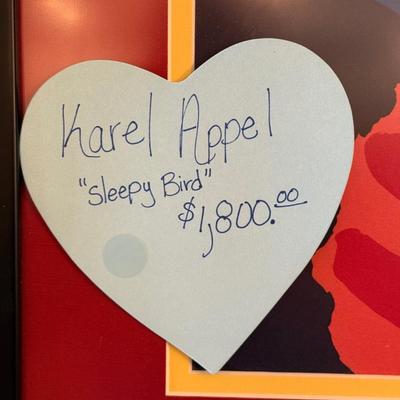 Karel Appel
"Sleepy Bird"
$1,800.00